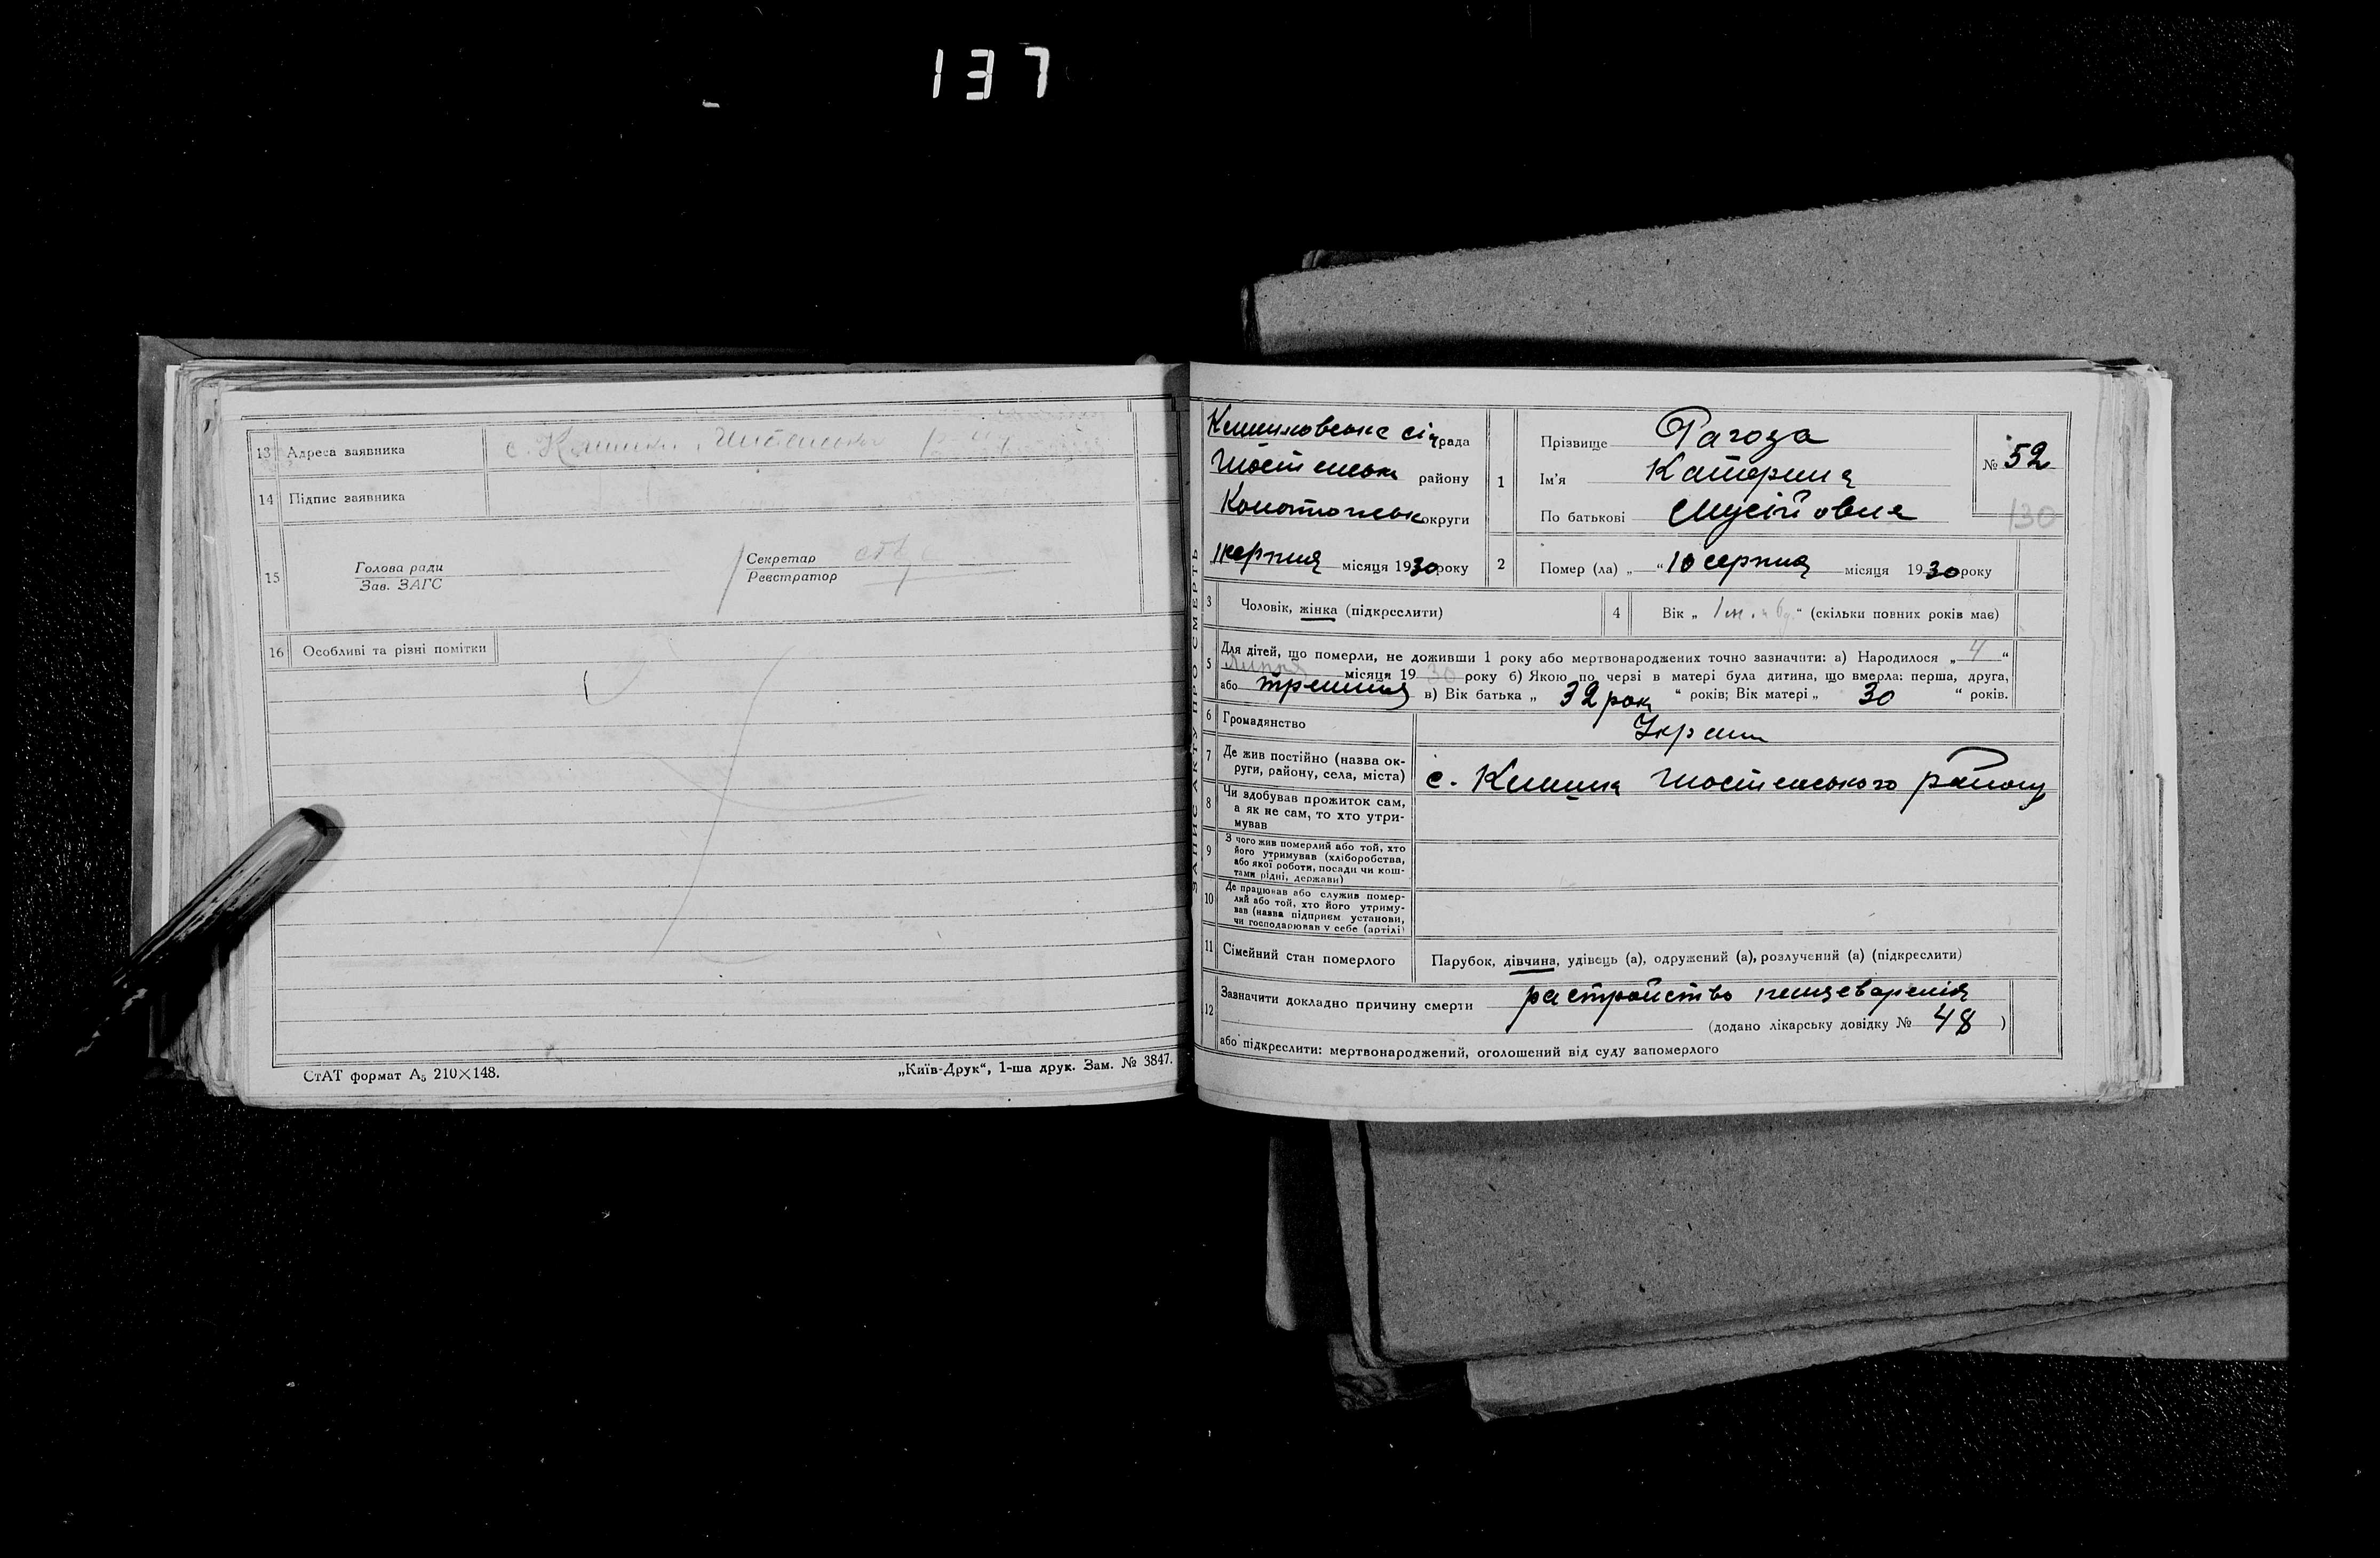 137
13 Адреса заявника с. Клишки Шостенського р-ну
14 Підпис заявника
15 Голова ради
Зав. ЗАГС
Секретар
Реєстратор
16 Особливі та різні помітки
СтАТ формат А5 210×148.
„Київ-Друк“, 1-ша друк. Зам. № 3847.
ЗАПИС АКТУ ПРО СМЕРТЬ
Клишковське сільрада
Шостенськ району
Конотопськ округи
11 серпня місяця 1930 року
1 Прізвище Рагоза
Ім'я Катерина
По батькові Мусійовна
№ 52
130
2 Помер (ла) „ “ 10 серпня місяця 1930 року
3 Чоловік, жінка (підкреслити)
4 Вік „ 1 м. “ (скільки повних років має)
5 Для дітей, що померли, не доживши 1 року або мертвонароджених точно зазначити: а) Народилося „ 4 “
липня місяця 1930 року б) Якою по черзі в матері була дитина, що вмерла: перша, друга,
або третья в) Вік батька „ 32 рок “ років; Вік матері „ 30 “ років.
6 Громадянство Украин
7 Де жив постійно (назва ок-
руги, району, села, міста) с. Клишки Шостенського району
8 Чи здобував прожиток сам,
а як не сам, то хто утри-
мував
9 З чого жив померлий або той, хто
його утримував (хліборобства,
або якої роботи, посади чи кош-
тами рідні, держави)
10 Де працював або служив помер-
лий або той, хто його утриму-
вав (назва підприєм установи,
чи господарював у себе (артілі)
11 Сімейний стан померлого Парубок, дівчина, удівець (а), одружений (а), розлучений (а) (підкреслити)
12 Зазначити докладно причину смерти растройство пищеваренія
(додано лікарську довідку № 48 )
або підкреслити: мертвонароджений, оголошений від суду запомерлого